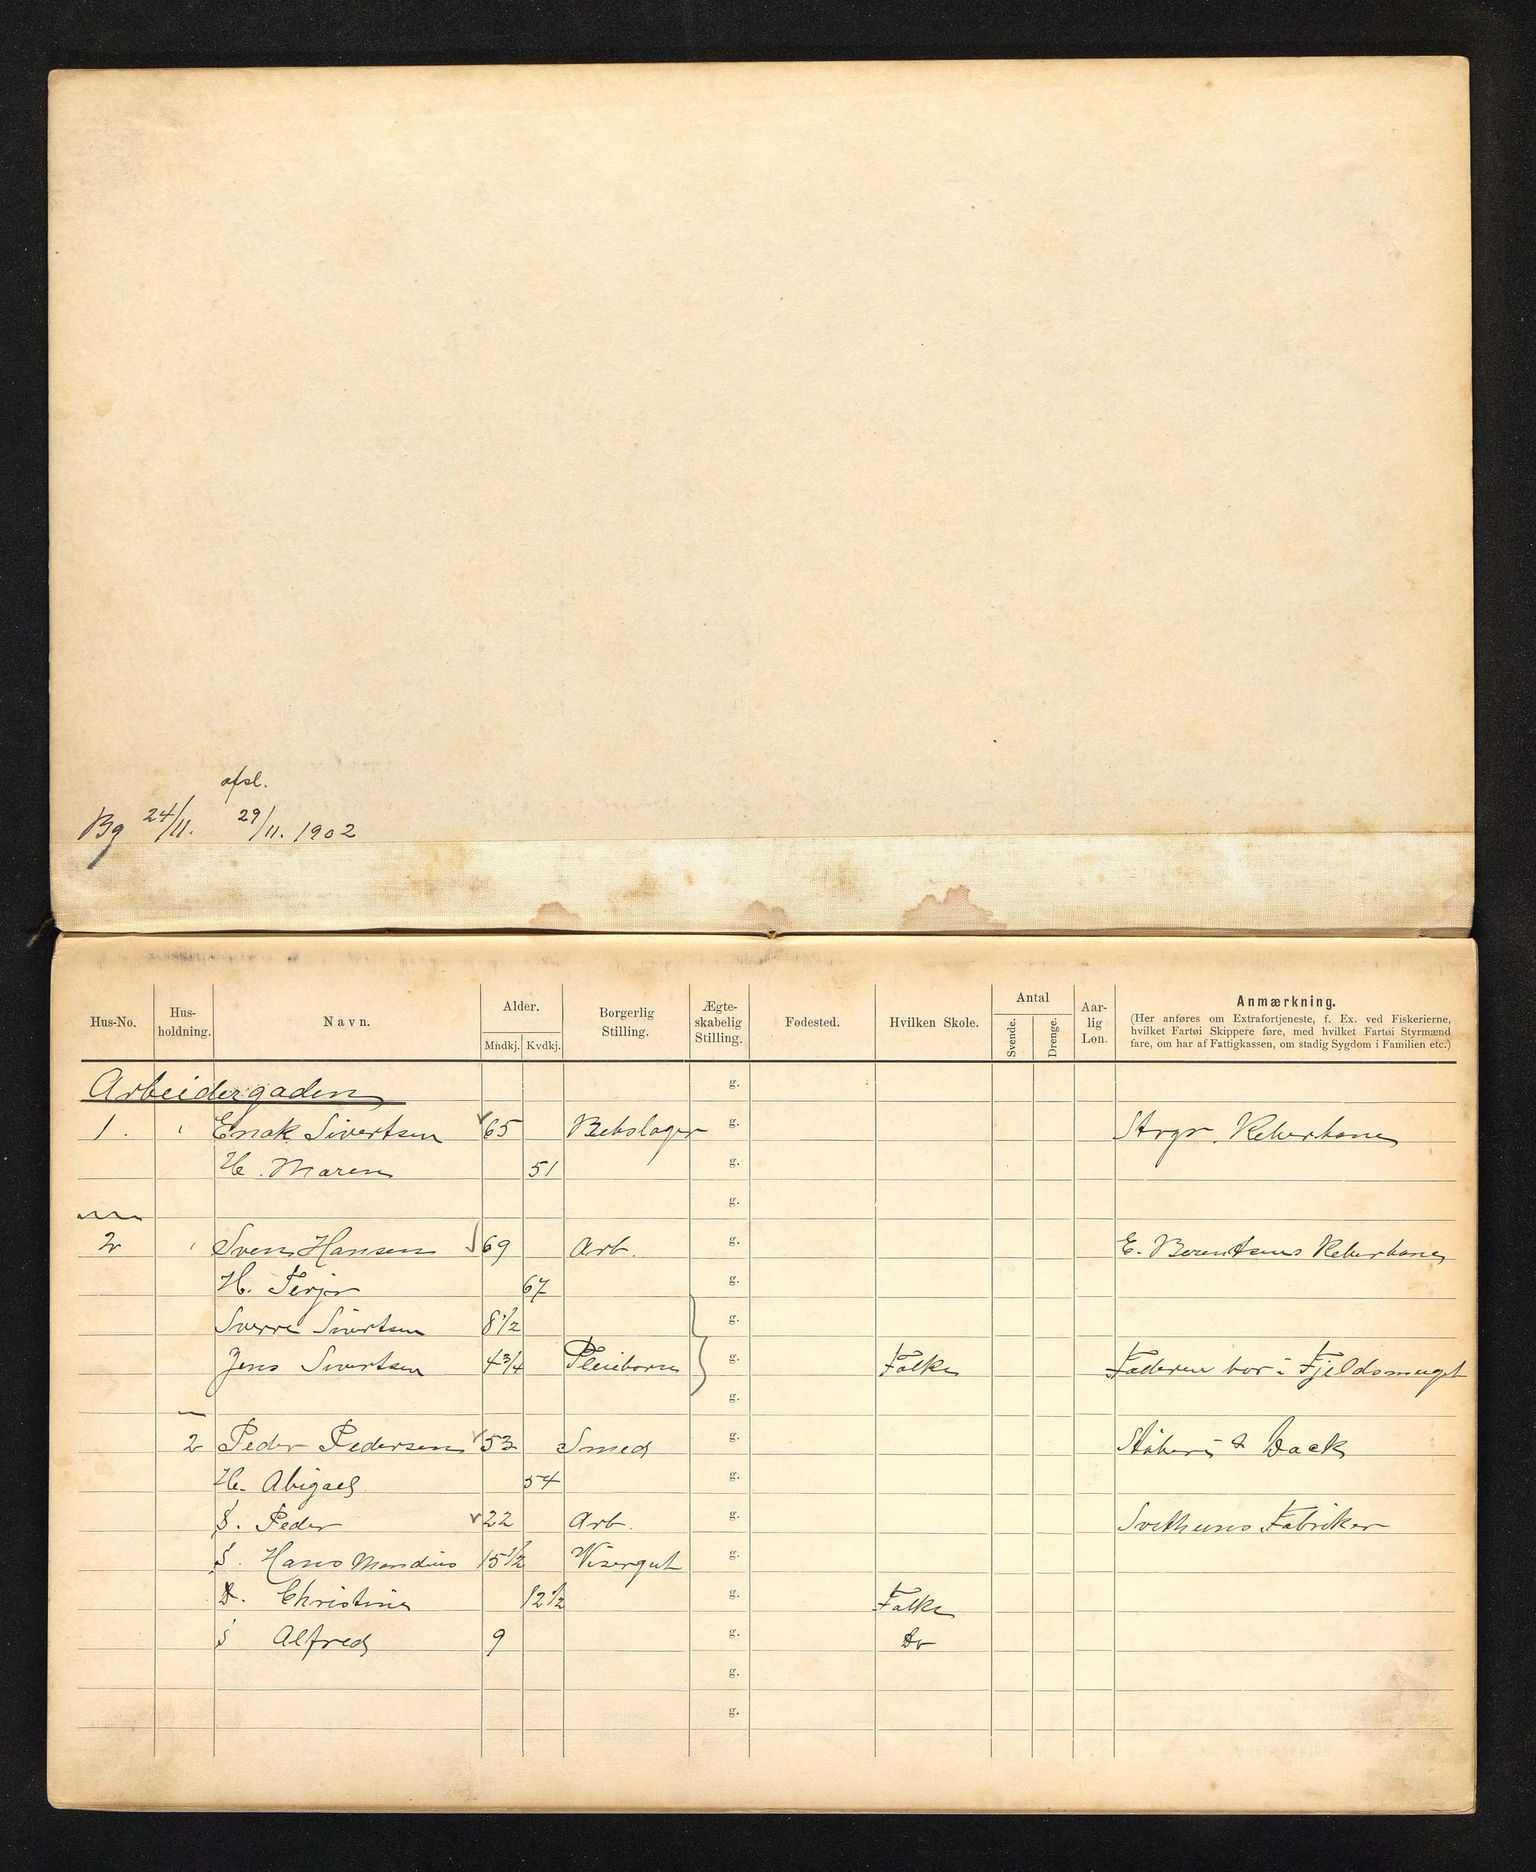 afsl.
Bg 24/11. 29/11. 1902
Hus-No. Hus-holdning. Navn. Alder. Mndkj. Kvdkj. Borgerlig Stilling. Ægte-skabelig Stilling. Fødested. Hvilken Skole. Antal Svende. Drenge. Aar-lig Løn. Anmærkning.
(Her anføres om Extrafortjeneste, f. Ex. ved Fiskerierne, hvilket Fartøi Skippere føre, med hvilket Fartøi Styrmænd fare, om har af Fattigkassen, om stadig Sygdom i Familien etc.)
Arbeidergaden g.
1. 1 Enok Sivertsen 65 Rebslager g. Strgs. Reberbane
H. Maren 51 g.
g.
2 1 Sven Hansen 69 Arb. g. E. Berentsens Reberbane
H. Terjer 67 g.
Sverre Sivertsen 8 1/2 g.
Jens Sivertsen 4 3/4 Pleiebørn g. Folke Faderen bor i Fjeldsmuget
g.
2 Peder Pedersen 53 Smed g. Støberi & Dock
H. Abigael 54 g.
S. Peder 22 Arb. g. Svithuns Fabriker
S. Hans Mandius 15 1/2 Visergut g.
D. Christine 12 1/2 g. Folke
S Alfred 9 g. Do
g.
g.